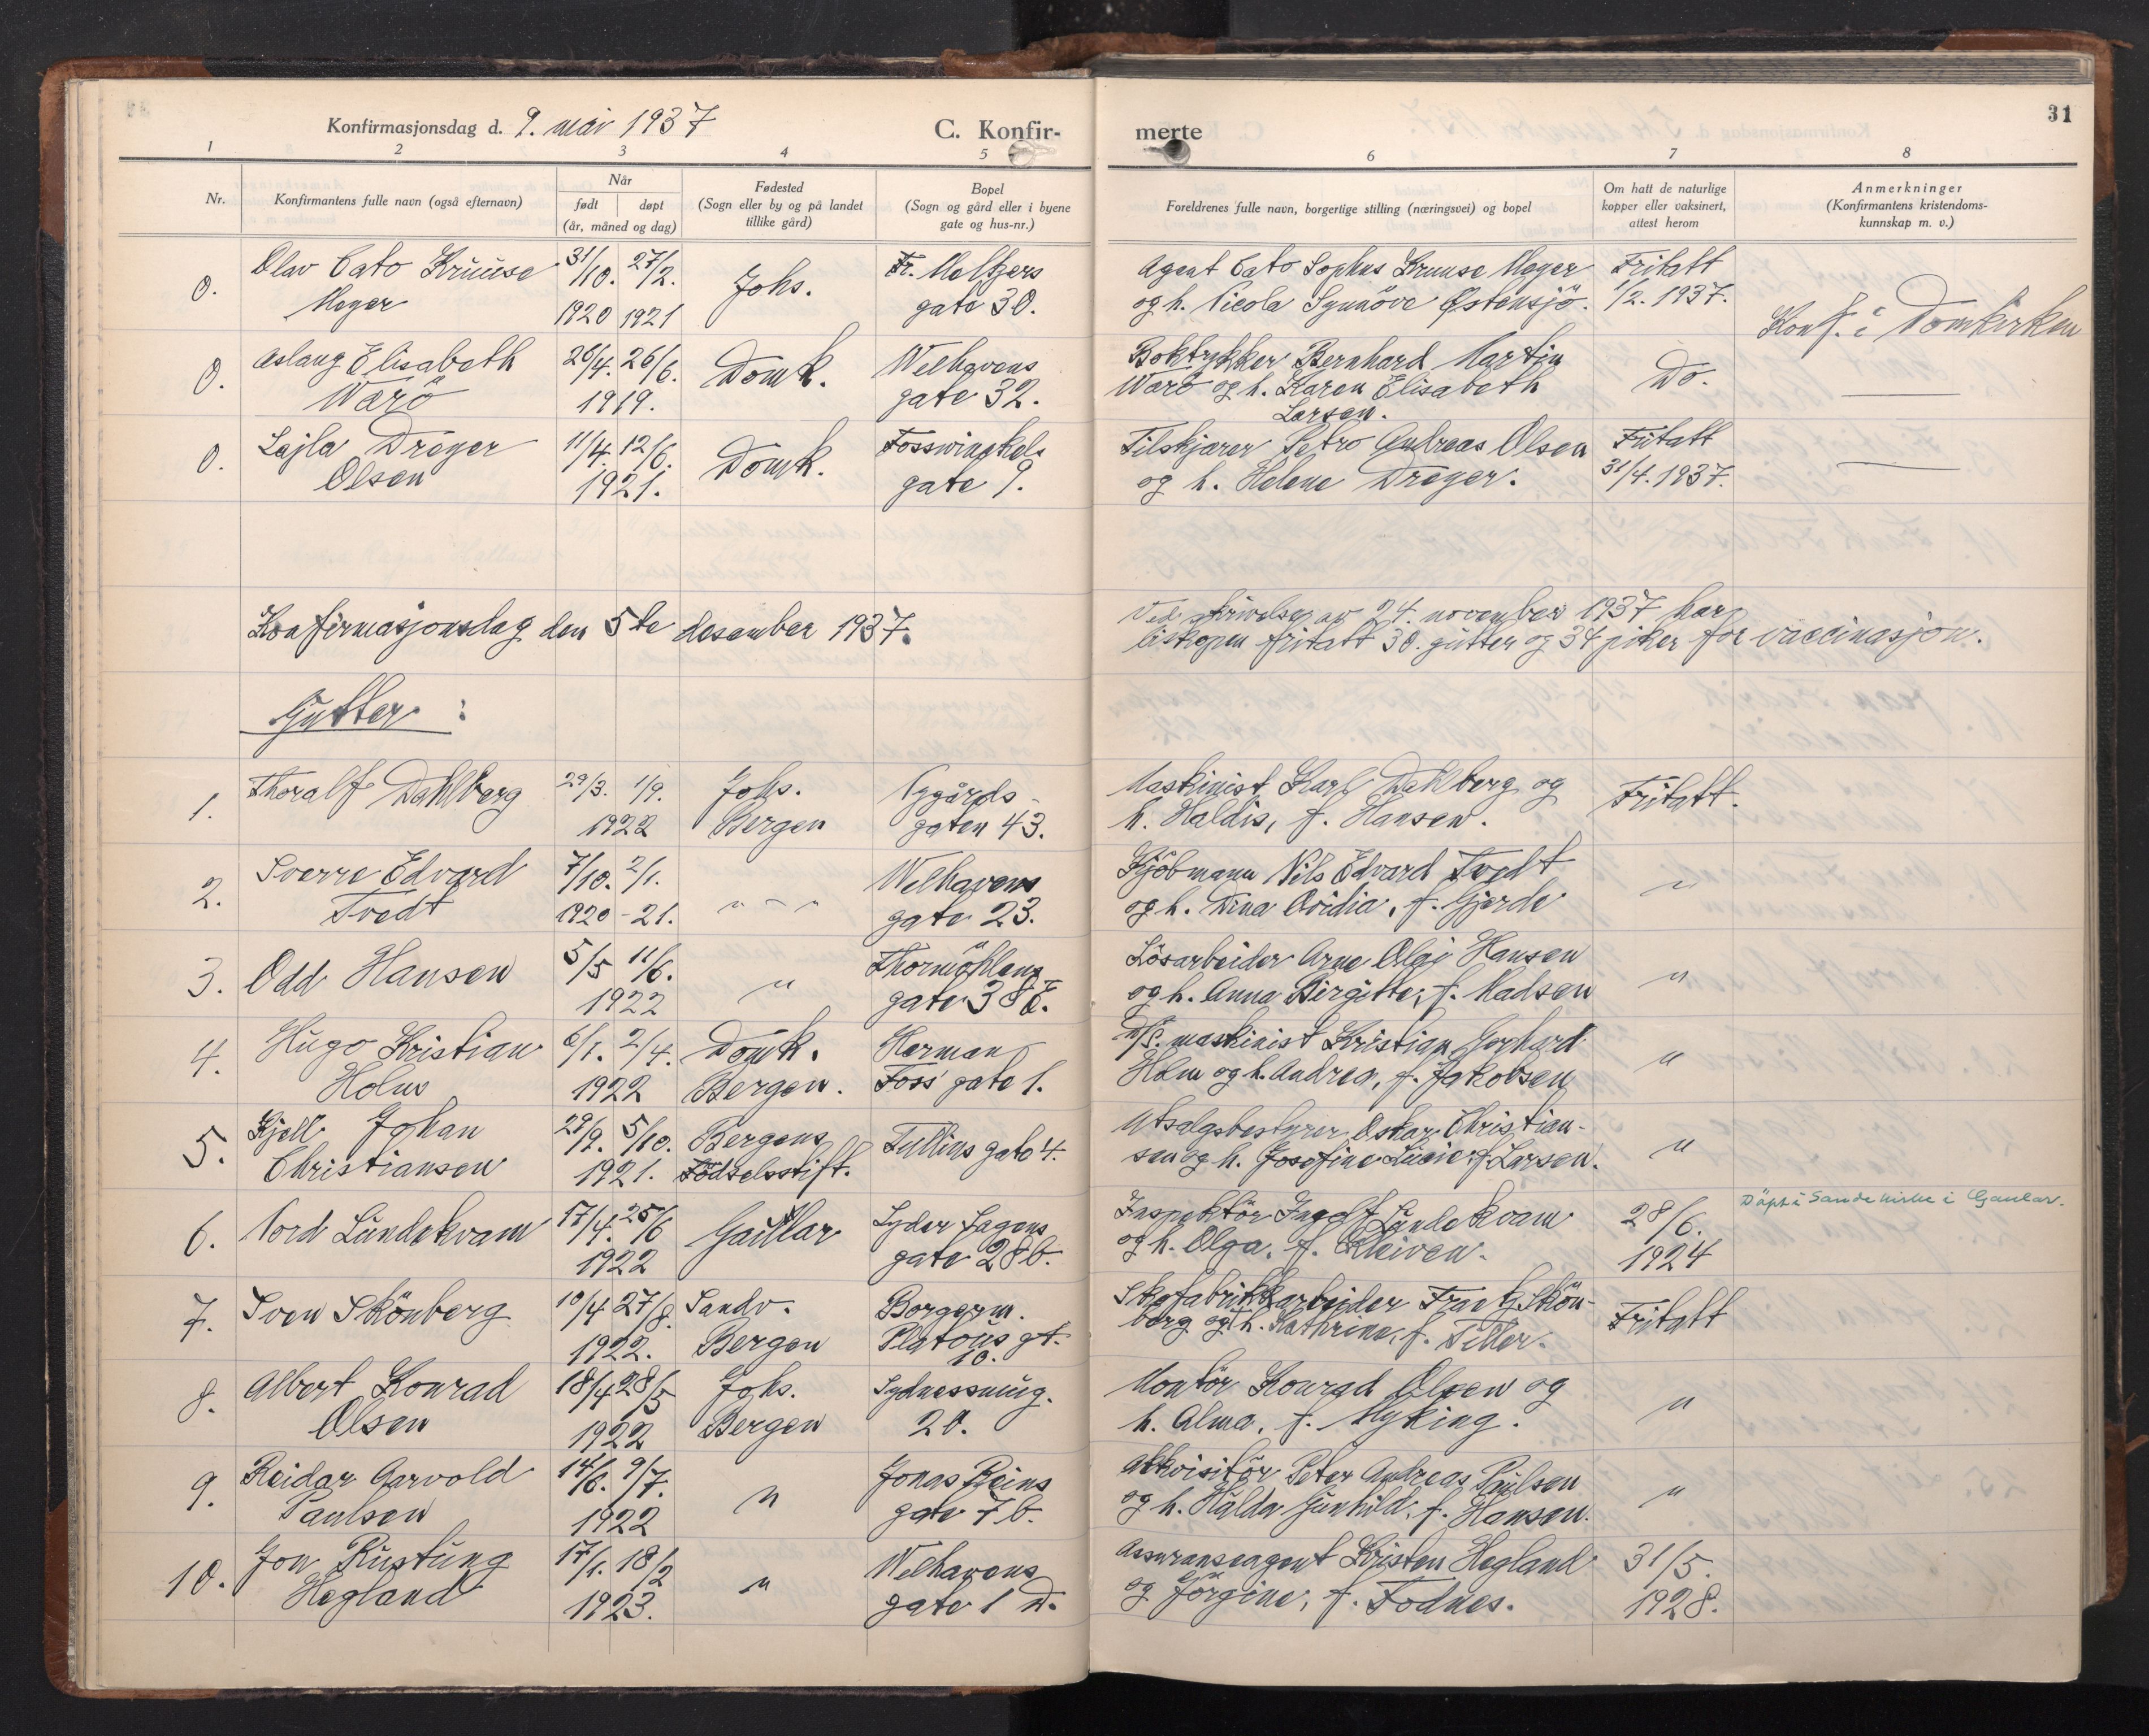 31
Konfirmasjonsdag d. 9. mai 1937
C. Konfirmerte
1 2 3 4 5 6 7 8
Nr.
Konfirmantens fulle navn (også efternavn)
Når
født døpt
(år, måned og dag)
Fødested
(Sogn eller by og på landet
tillike gård)
Bopel
(Sogn og gård eller i byene
gate og hus-nr.)
Foreldrenes fulle navn, borgerlige stilling (næringsvei) og bopel
Om hatt de naturlige
kopper eller vaksinert,
attest herom
Anmerkninger
(Konfirmantens kristendoms-
kunnskap m. v.)
0. Olav Cato Kruuse 31/10. 27/2. Johs. Fr. Meltzers Agent Cato Sophus Kruuse Meyer Fritatt
Meyer 1920 1921 gate 30. og h. Nicola Synnöve Østensjö. 1/2. 1937. Konf. i Domkirken
0. Aslaug Elisabeth 20/4. 26/6. Domk. Welhavens Boktrykker Bernhard Martin Do. —
Wärö 1919. gate 32. Wärö og h. Karen Elisabeth
Larsen.
0. Lajla Dreyer 11/4. 12/6. Domk. Fosswinckels Tilskjærer Petro Andreas Olsen Fritatt —
Olsen 1921. gate 9. og h. Helene Dreyer. 31/4. 1937.
Konfirmasjonsdag den 5te desember 1937.
Ved skrivelse av 24. november 1937 har
biskopen fritatt 30. gutter og 34 piker for vaccinasjon.
Gutter :
1. Thoralf Dahlberg 29/3. 1/9. Johs. Nygårds- Maskinist Karl Dahlberg og Fritatt.
1922 Bergen gaten 43. h. Haldis, f. Hansen.
2. Sverre Edvard 7/10. 2/1. " - " Welhavens Kjöbmann Nils Edvard Tvedt "
Tvedt 1920 - 21. gate 23. og h. Dina Ovidia, f. Gjerde
3. Odd Hansen 5/5 11/6. " Thormöhlens Lösarbeider Arne Olai Hansen "
1922 gate 38 E. og h. Anna Birgitte, f. Madsen
4. Hugo Kristian 6/1. 2/4. Domk. Herman maskinist Kristian Gerhard "
Holm 1922 Bergen. Foss' gate 1. Holm og h. Andrea, f. Jakobsen
5. Kjell Johan 29/9. 5/10. Bergens Tullins gate 4. Utsalgsbestyrer Oskar Christian- "
Christiansen 1921. Födselsstift. sen og h. Josefine Lucie f. Larsen.
6. Nord Lundekvam 17/4. 25/6 Gaular Lyder Sagens Inspektör Ingolf Lundekvam 28/6. Döpt i Sande kirke i Gaular.
1922 gate 28 b. og h. Olga, f. Kleiven. 1924
7. Sven Skönberg 10/4 27/8. Sandv. Borgerm. Skofabrikkarbeider Frantz Skön- Fritatt
1922. Bergen Platous gt. berg og h. Kathrine, f. Teller.
10.
8. Albert Konrad 18/4 28/5 Johs. Sydnessmug. Montör Konrad Olsen og "
Olsen 1922 Bergen 20. h. Alma, f. Myking.
9. Reidar Aarvold 14/6. 9/7. " Jonas Reins Akkvisitör Peter Andreas Paulsen "
Paulsen 1922 gate 7 b. og h. Halda Gunhild, f. Hansen.
10. Jon Rustung 17/1. 18/2 " Welhavens Assuranseagent Kristen Hegland 31/5.
Hegland 1923. gate 1 D. og Jörgine, f. Fodnes. 1928.